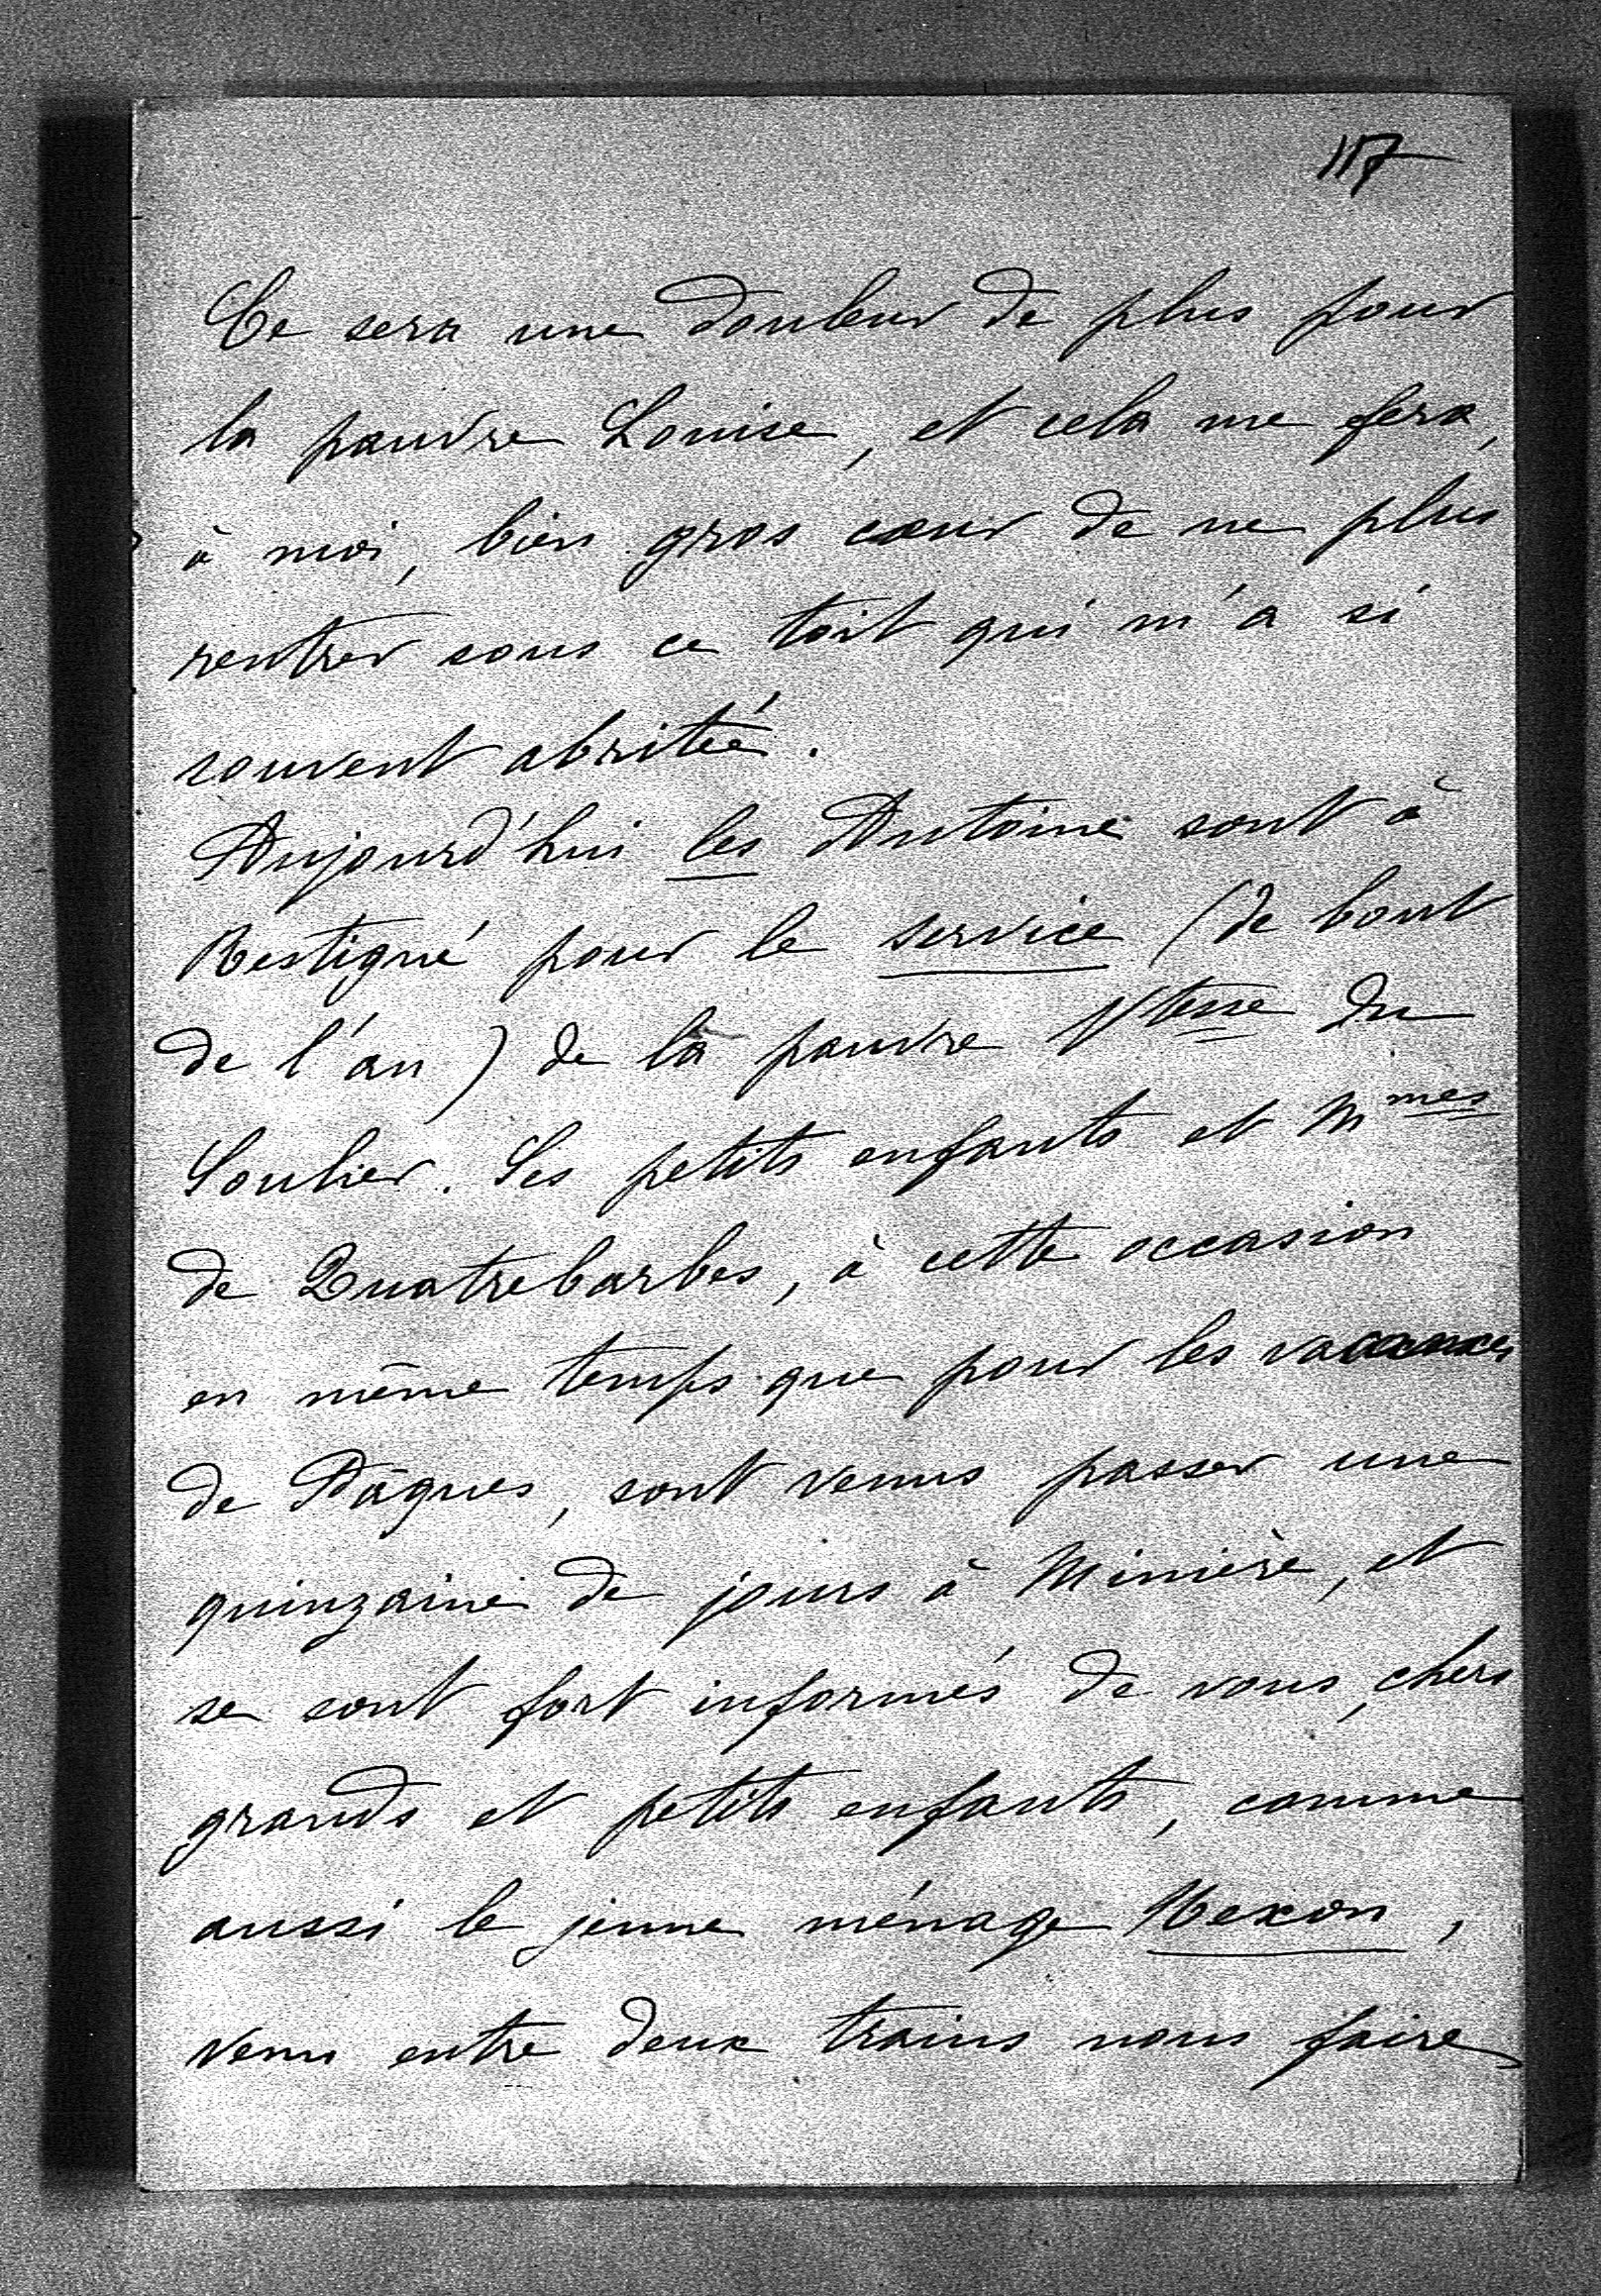 117
Ce sera une douleur de plus pour
la pauvre Louise, et cela me fera,
à moi, bien gros cœur de ne plus
rentrer sous ce toit qui m'a si
souvent abritée.
Aujourd'hui les Antoine sont à
Restigné pour le service (de bout
de l'an) de la pauvre Vtesse du
Soulier. Ses petits enfants et Mmes
de Quatrebarbes, à cette occasion
en même temps que pour les vacances
de Pâques, sont venus passer une
quinzaine de jours à Minière, et
se sont fort informés de vous, chers
grands et petits enfants, comme
aussi le jeune ménage Nexon,
venu entre deux trains nous faire